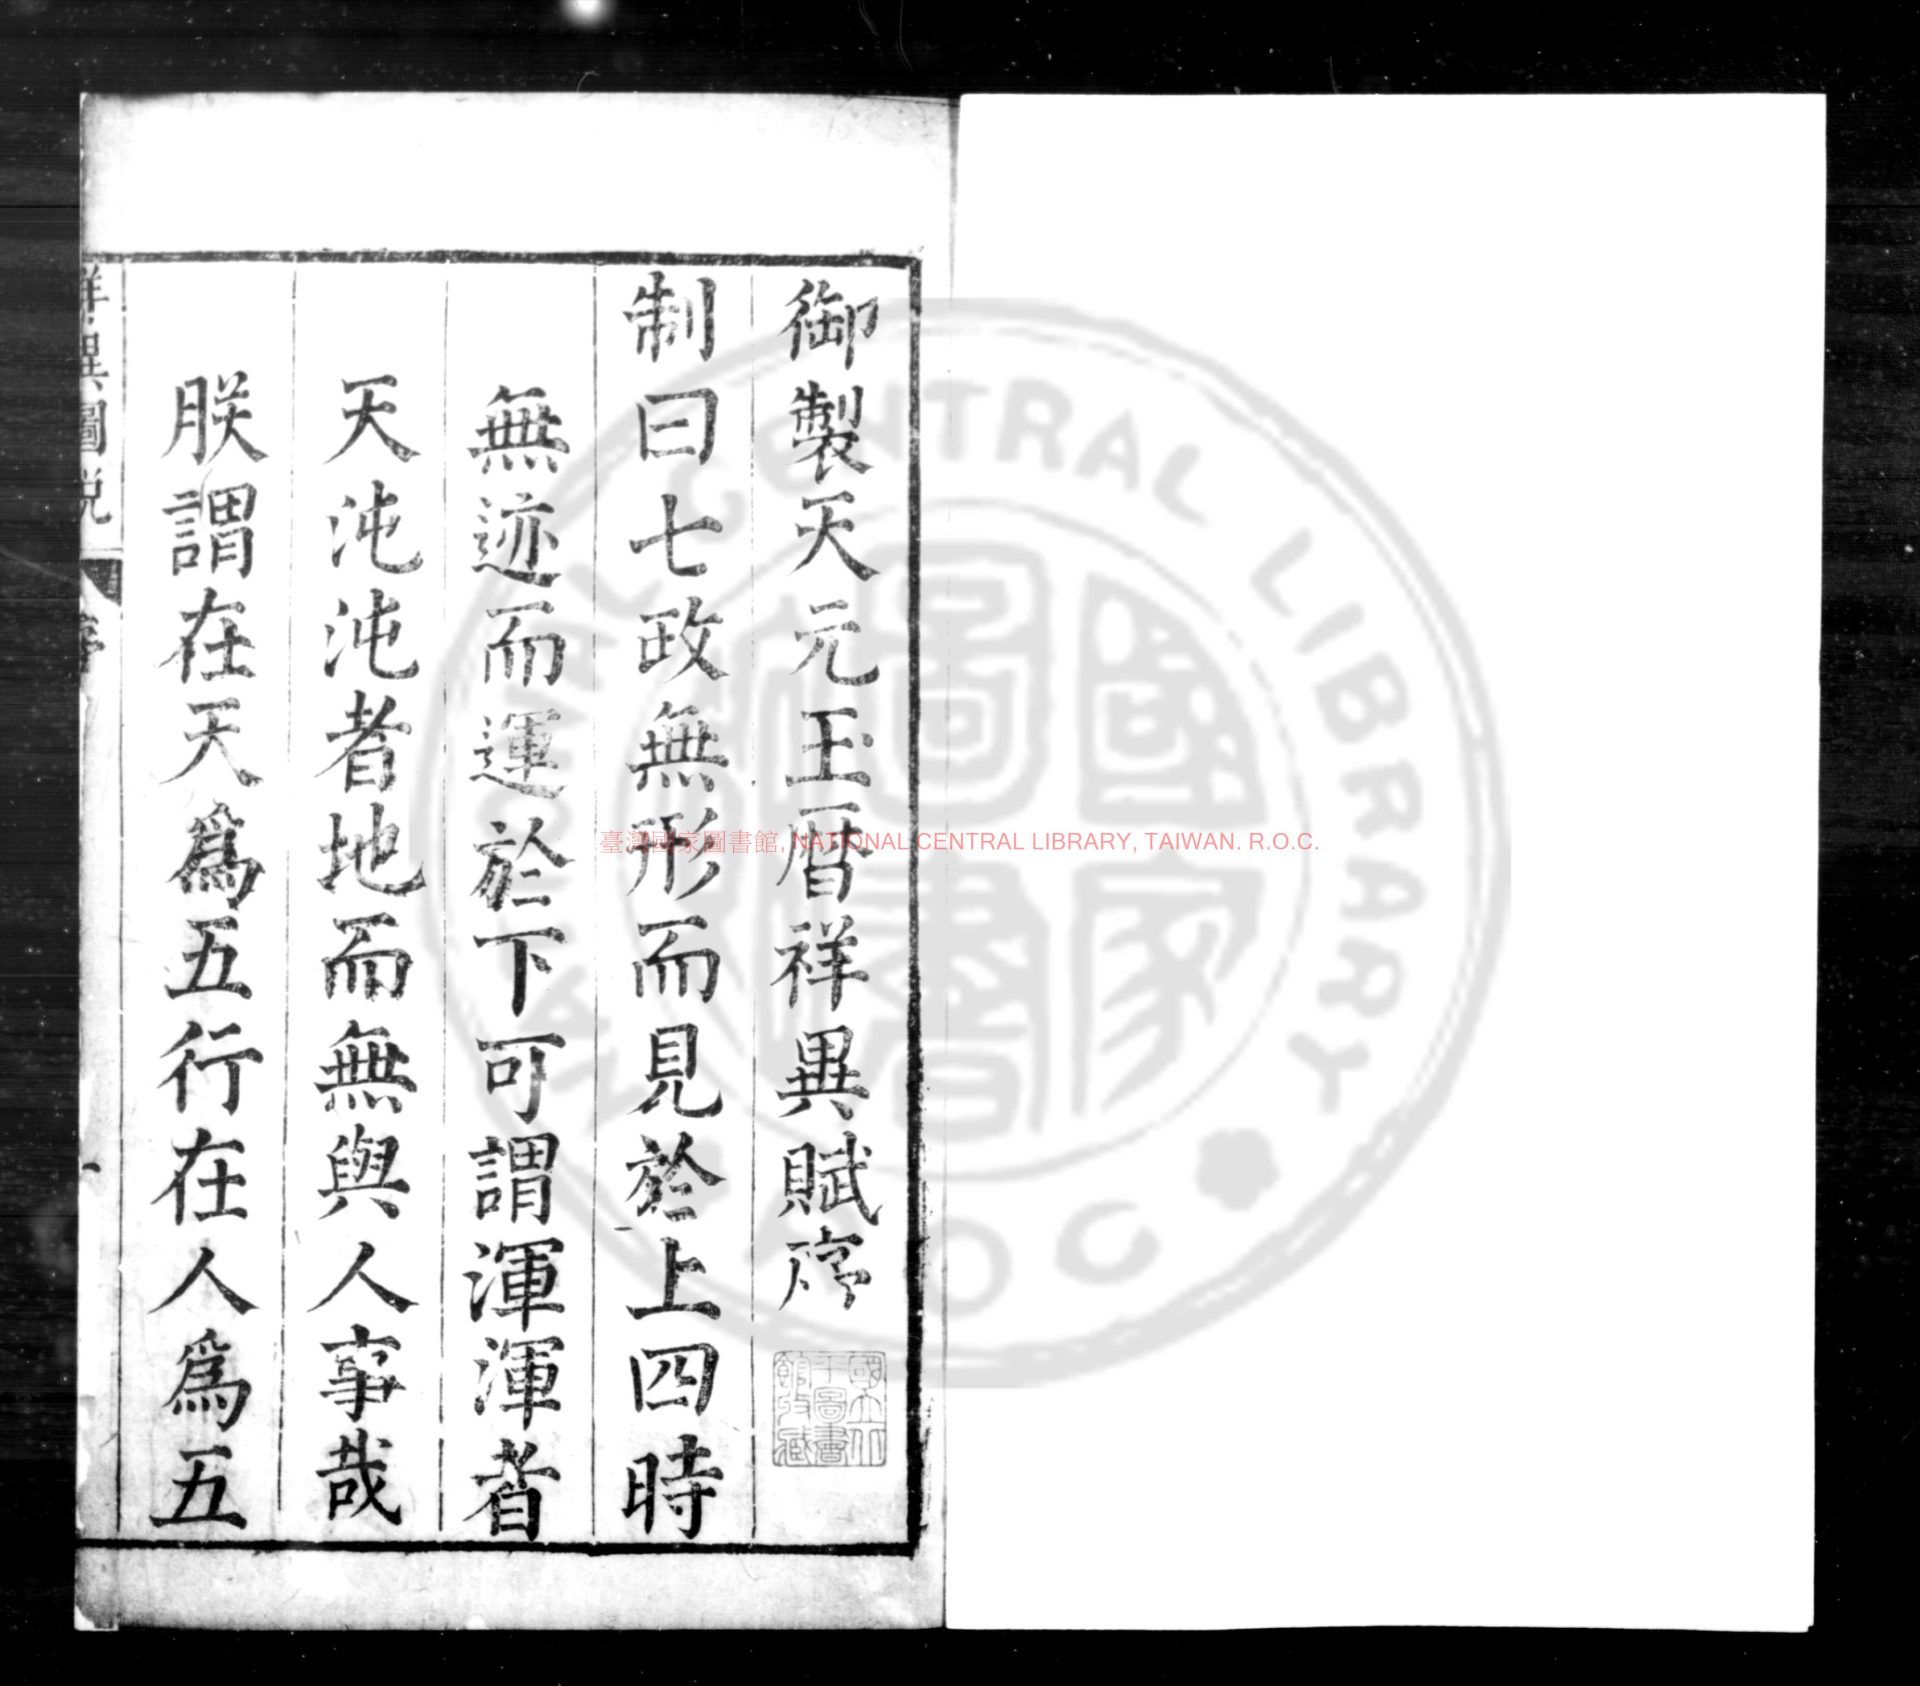 御製天元玉曆祥異賦序
制曰七政無形而見於上四時
無迹而運於下可謂渾渾者
天沌沌者地而無與人事哉
朕謂在天爲五行在人爲五
祥異圖說
序
一
國立中央圖書館收藏
臺灣國家圖書館, NATIONAL CENTRAL LIBRARY, TAIWAN. R.O.C.
NATIONAL CENTRAL LIBRARY
R.O.C.
國家圖書